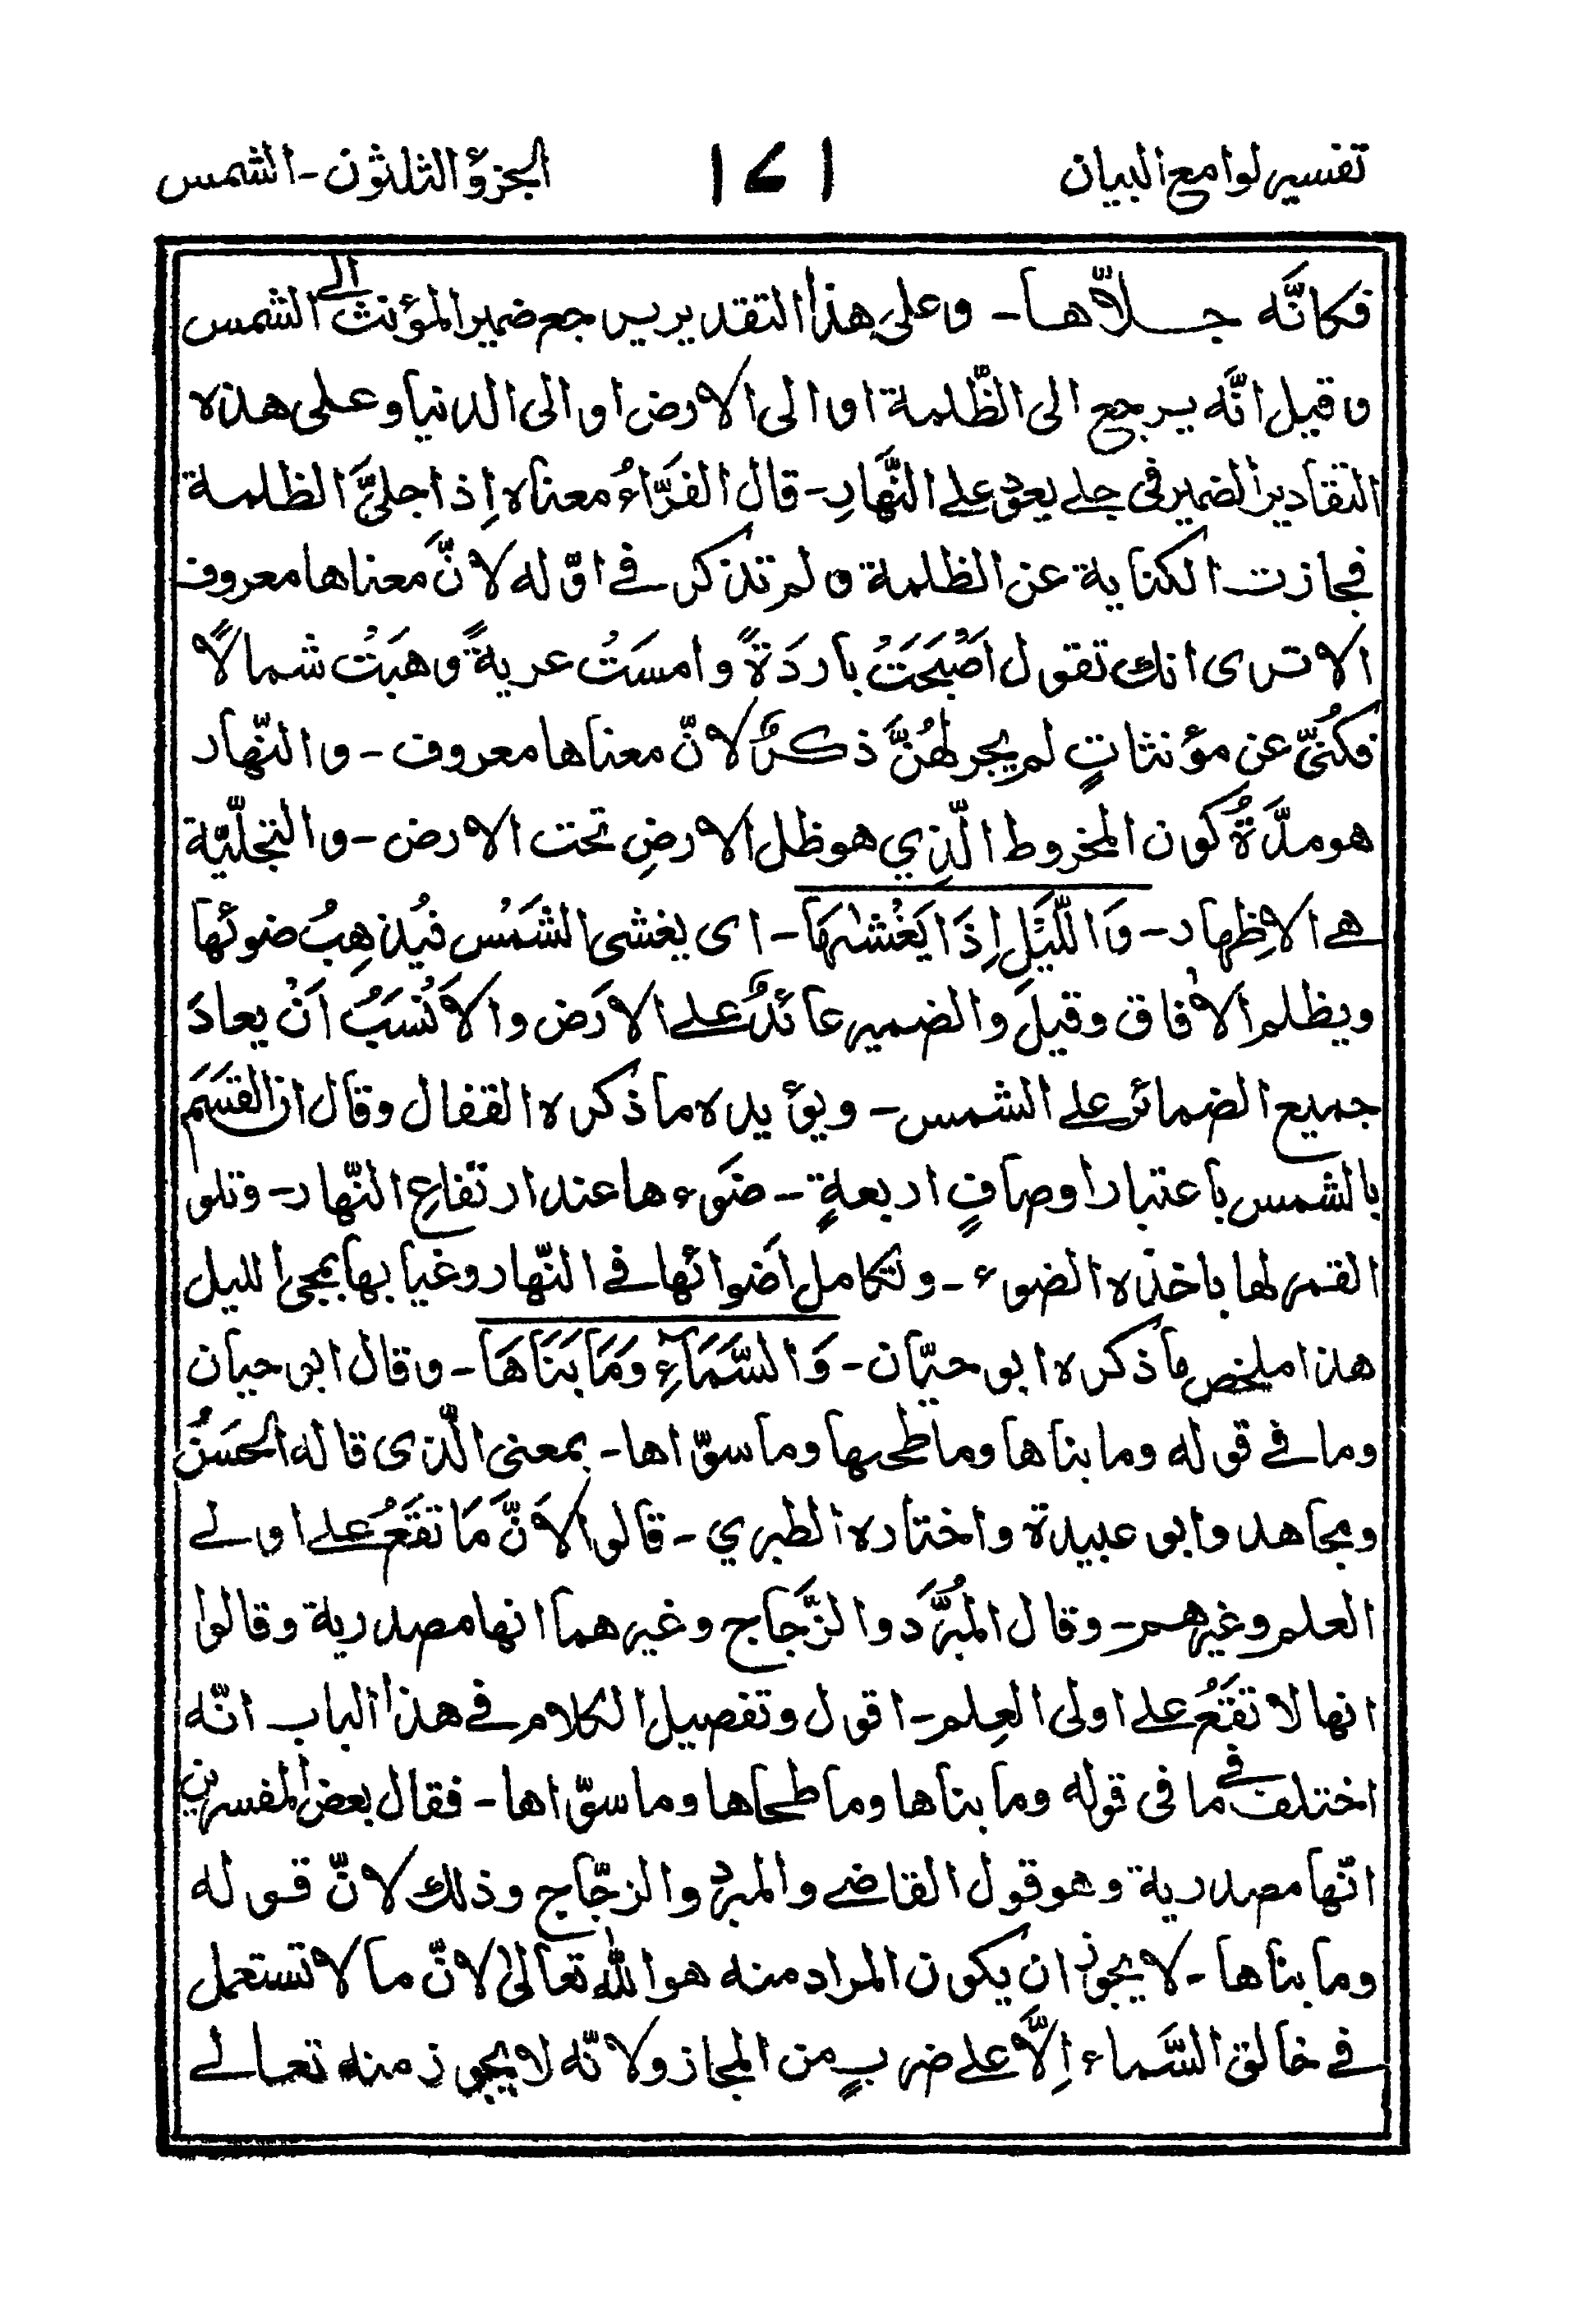 تفسير لوامع البيان ١٧١ الجزؤ الثلثون - الشمس
فكانَّه جلاّها - وعلى هذا التقدير يرجع ضمير المؤنث الى الشمس
وقيل انَّه يرجع الى الظّلمة او الى الارض او الى الدنيا وعلى هذه
التقادير الضمير فى جلے يعود علے النَّهارِ - قال الفَرَّاءُ معناه اِذا جلىَّ الظلمة
فجازت الكناية عن الظلمة ولم تذكر فے اوّله لانَّ معناها معروف
الا ترى انك تقول اَصْبَحَتُ باردَةً وامسَتُ عريةً وهبَتُ شمالًا
فكُنىَّ عن مؤنثاتٍ لم يجر لهُنَّ ذكرٌ لانّ معناها معروف - والنّهار
هو مدَّةُ كون المخروط الّذِي هو ظل الارضِ تحت الارض - والتجلّيّة
هے الاِظهار - وَالَّيْلِ اِذَا يَغْشٰىهَا - اى يغشى الشَمْس فيُذهِبُ ضوئها
ويظلم الاٰفاق وقيلَ والضمير عائدٌ علے الارَض والاَنْسَبُ اَنْ يعادَ
جميع الضمائر علے الشمس - ويؤيده ما ذكره القفال وقال ان القَسَمَ
بالشمس باعتبار اوصافٍ اربعةٍ - ضَوءها عند ارتفاعِ النّهار - وتلو
القمر لها باخذه الضوء - ولتكامل اَضوائها فے النّهار وغيابها بمجئ الليل
هذا ملخص ما ذكره ابو حيّان - وَالسَّمَآءِ وَمَا بَنَاهَا - وقال ابو حيان
وما فے قوله وما بناها وما طحىها وما سوّاها - بمعنى الّذى قاله الحسَنُ
ومجاهد وابو عبيدة واختاره الطبري - قالوا لاَنَّ مَا تقَعُ علے اولے
العلم وغيرهم - وقال المُبَّردَ والزَّجاج وغيرهما انها مصدرية وقالوا
انها لا تقَعُ علے اولى العِلم - اقول وتفصيل الكلام فے هذا الباب انّه
اختلف فے ما فى قوله وما بناها وما طحاها وما سوّاها - فقال بعض المفسرين
انّها مصدرية وهو قول القاضے والمبرد والزجّاج وذلك لانّ قوله
وما بناها - لا يجوز ان يكون المراد منه هو الله تعالىٰ لانّ ما لا تستعمل
فے خالق السَّماء اِلَّا علے ضربٍ من المجاز ولانّه لا يجوز منه تعالے